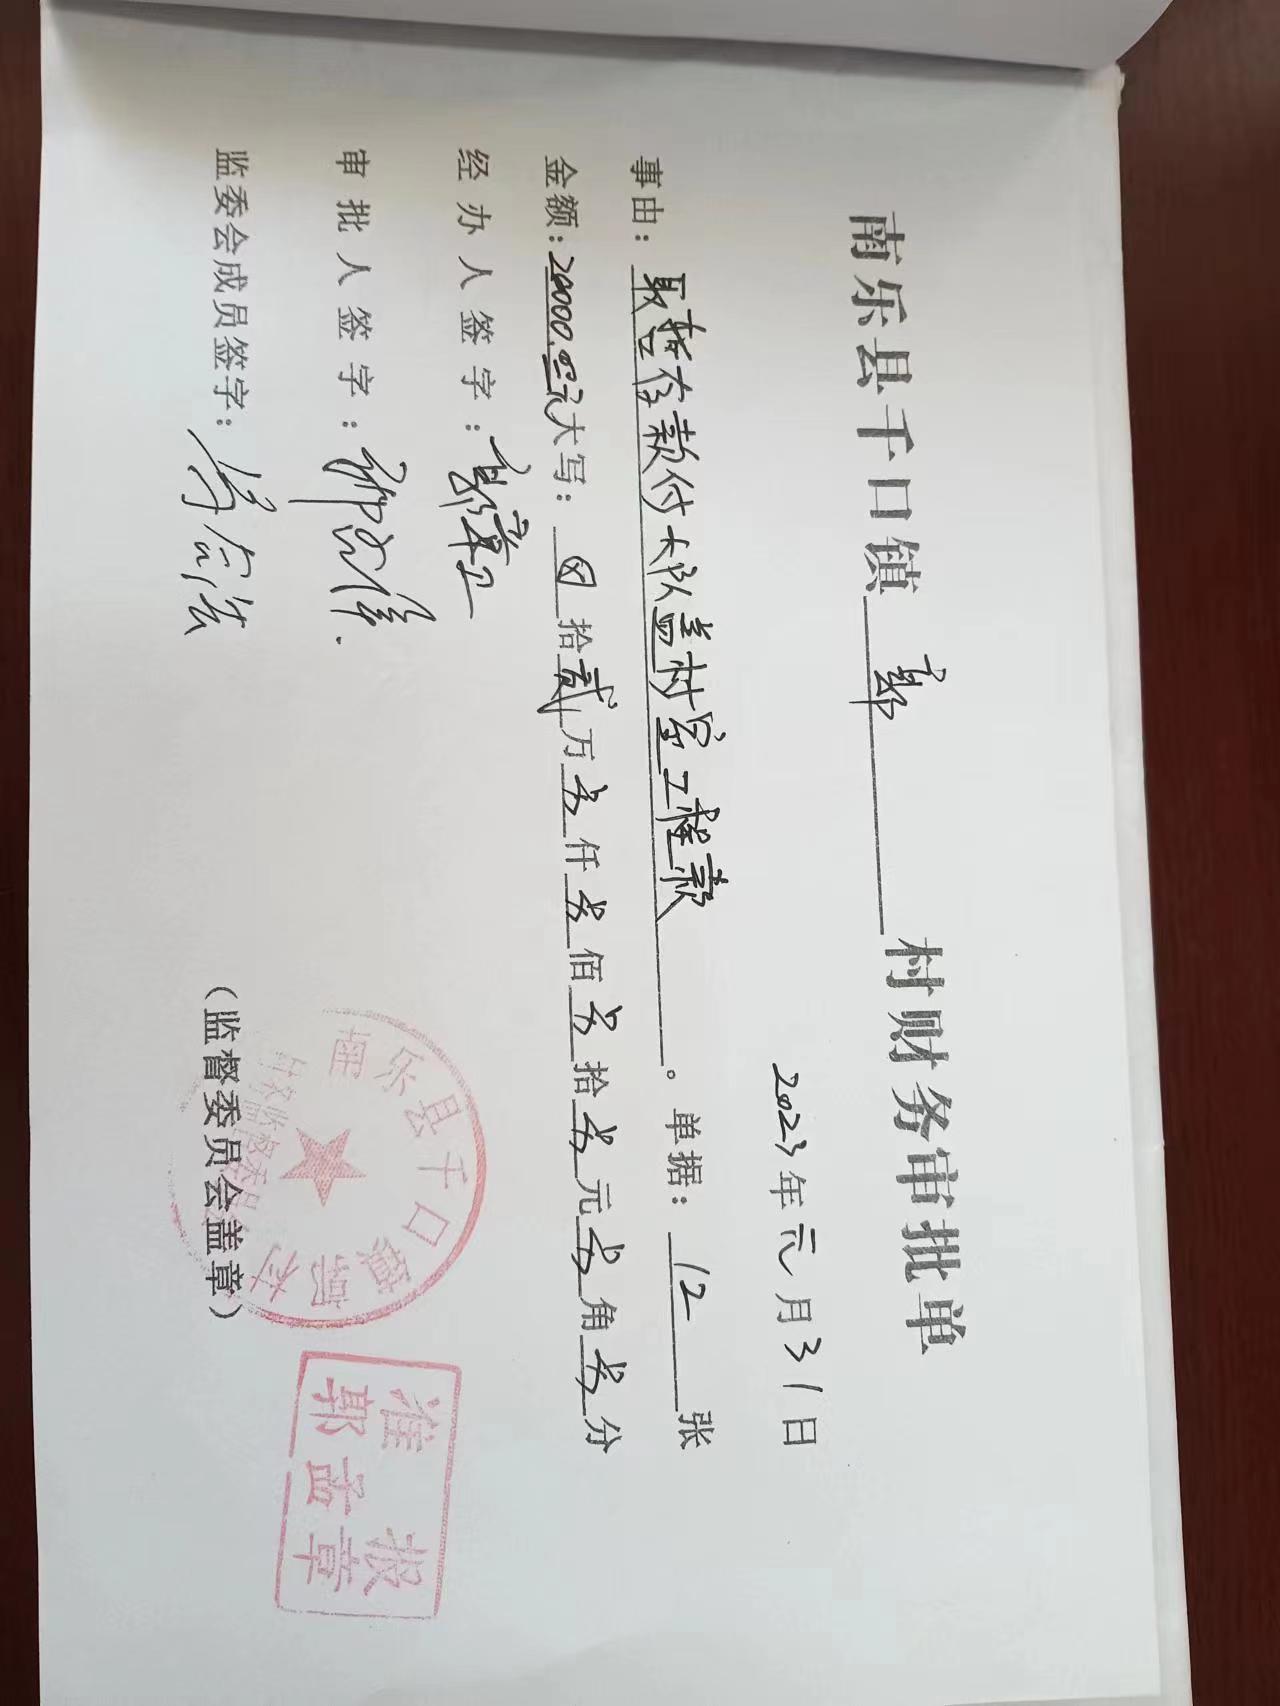 南乐县千口镇 郭 村财务审批单
2023年元月31日
事由：取暂存款付大队盖村室工程款。 单据：12张
金额：20000.00元大写：⊗拾贰万零仟零佰零拾零元零角零分
经办人签字：郭章卫
审批人签字：
监委会成员签字：
（监督委员会盖章）
南乐县千口镇 村
村务监督委员会
准 报
郭孟章